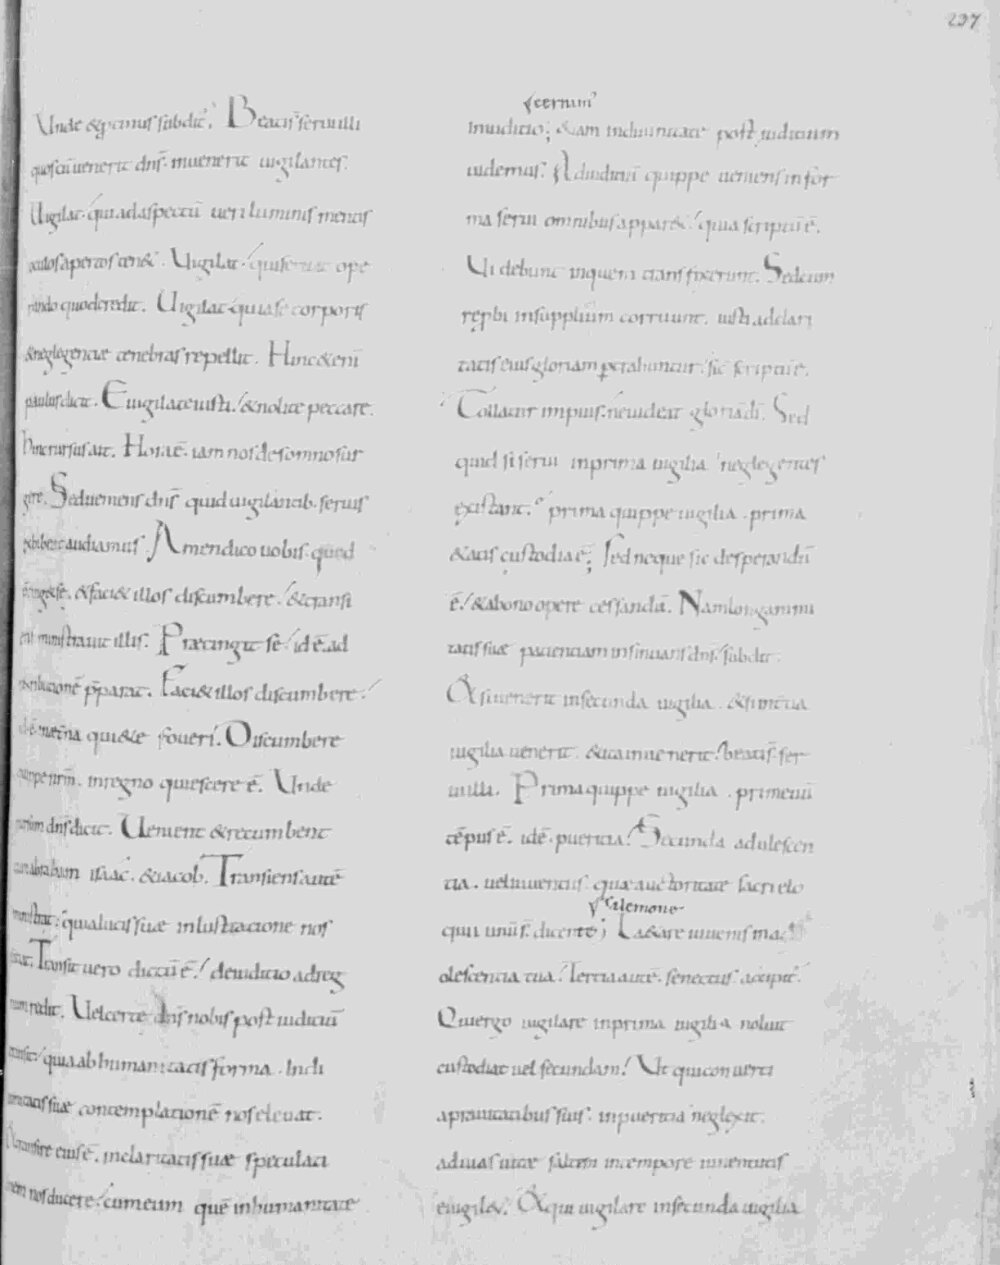 237
Unde & protinus subdit᷒. Beati s̄ serui illi
quos cū uenerit dn̄s. inuenerit uigilantes.
Uigilat. qui ad aspectū ueri luminis mentis
oculos apertos ten&. Uigilat. qui seruat ope
rando quod credit. Uigilat qui a se corporis
& neglegentiae tenebras repellit. Hinc & enī
paulus dicit. Euigilate iusti. & nolite peccare.
hinc rursus ait. Hora ē. iam nos de somno sur
gere. Sed ueniens dn̄s quid uigilantib. seruis
exhibeat audiamus. Amen dico uobis. quod
p̄cing& se. & faci& illos discumbere. & transi
ens ministrauit illis. Praecingit se id ē. ad
retributionē p̄parat. Faci& illos discumbere.
id ē. in aet̄na qui&e foueri. Discumbere
quippe nr̄m. in regno quiescere ē. Unde
rursum dn̄s dicit. Uenient & recumbent
cum abraham isaac. & iacob. Transiens autē
ministrat. qui a lucis suae inlustratione nos
satiat. Transit uero dictū ē. de iuditio ad reg
num redit. Uel certe dn̄s nobis post iudiciū
transit quia ab humanitatis forma. In di
uinitatis suae contemplationē nos eleuat.
& transire eius ē. in claritatis suae speculati
onem nos ducere. cum eum quē in humanitate
cernim᷒
in iuditio; &iam in diuinitate post iuditium
uidemus. Ad iuditiū quippe ueniens in for
ma serui omnibus appar&. quia scriptū ē.
Uidebunt in quem transfixerunt. Sed cum
reprobi in suppliium corruunt. iusti ad clari
tatis eius gloriam pertrahuntur. sic̄ scriptū ē.
Tollatur impius. ne uideat gloria dī. Sed
quid si serui in prima uigilia neglegentes
existant. prima quippe uigilia. prima
&atis custodia ē; sed neque sic desperandū
ē. & a bono opere cessandū. Nam longanimi
tatis suae patientiam insinuans dn̄s. subdit.
& si uenerit in secunda uigilia. & si in tertia
uigilia uenerit. & ita inuenerit. beati s̄ ser
ui illi. Prima quippe uigilia. primeuū
tēpus ē. id ē. pueritia. Secunda adulescen
tia. uel iuuentus. quae auctoritate sacri elo
salemone
quii unū s̄. dicente; La&are iuuenis in ad
olescentia tua. Tertia autē. senectus accipit᷒.
Qui ergo uigilare in prima uigilia noluit
custodiat uel secundam. Ut qui conuerti
a prauitatibus suis. in pueritia neglexit.
ad uias uitae saltem in tempore iuuentutis
euigil&. & qui uigilare in secunda uigilia